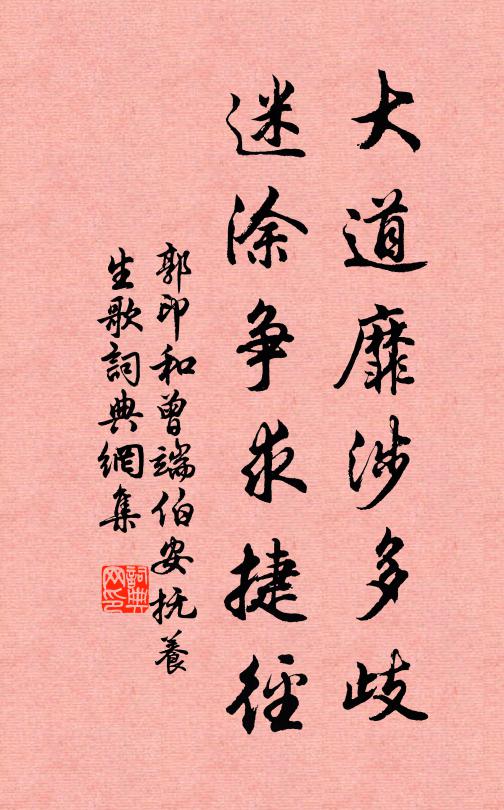 大道靡涉多歧
迷涂争求捷徑
郭印和曾端伯安抚養
生歌詞典網集
詞典网印